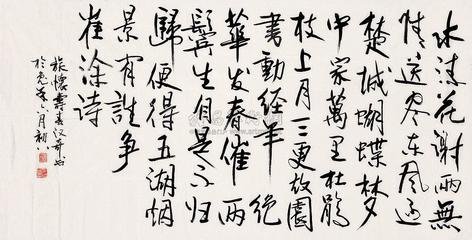 水流花谢兩無
情送尽东风过
楚城蝴蝶梦
中家萬里杜鹃
枝上月三更故園
書動经年绝
華发春催兩
鬓生自是不归
歸便得五湖烟
景有誰争
崔涂诗
旅懷
年六月初八